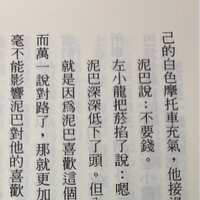 己的白色摩托車充氣，他接過
泥巴說：不要錢。
左小龍把菸掐了說：嗯
泥巴深深低下了頭。但
就是因為泥巴喜歡這個
而萬一說對路了，那就更加
毫不能影響泥巴對他的喜歡